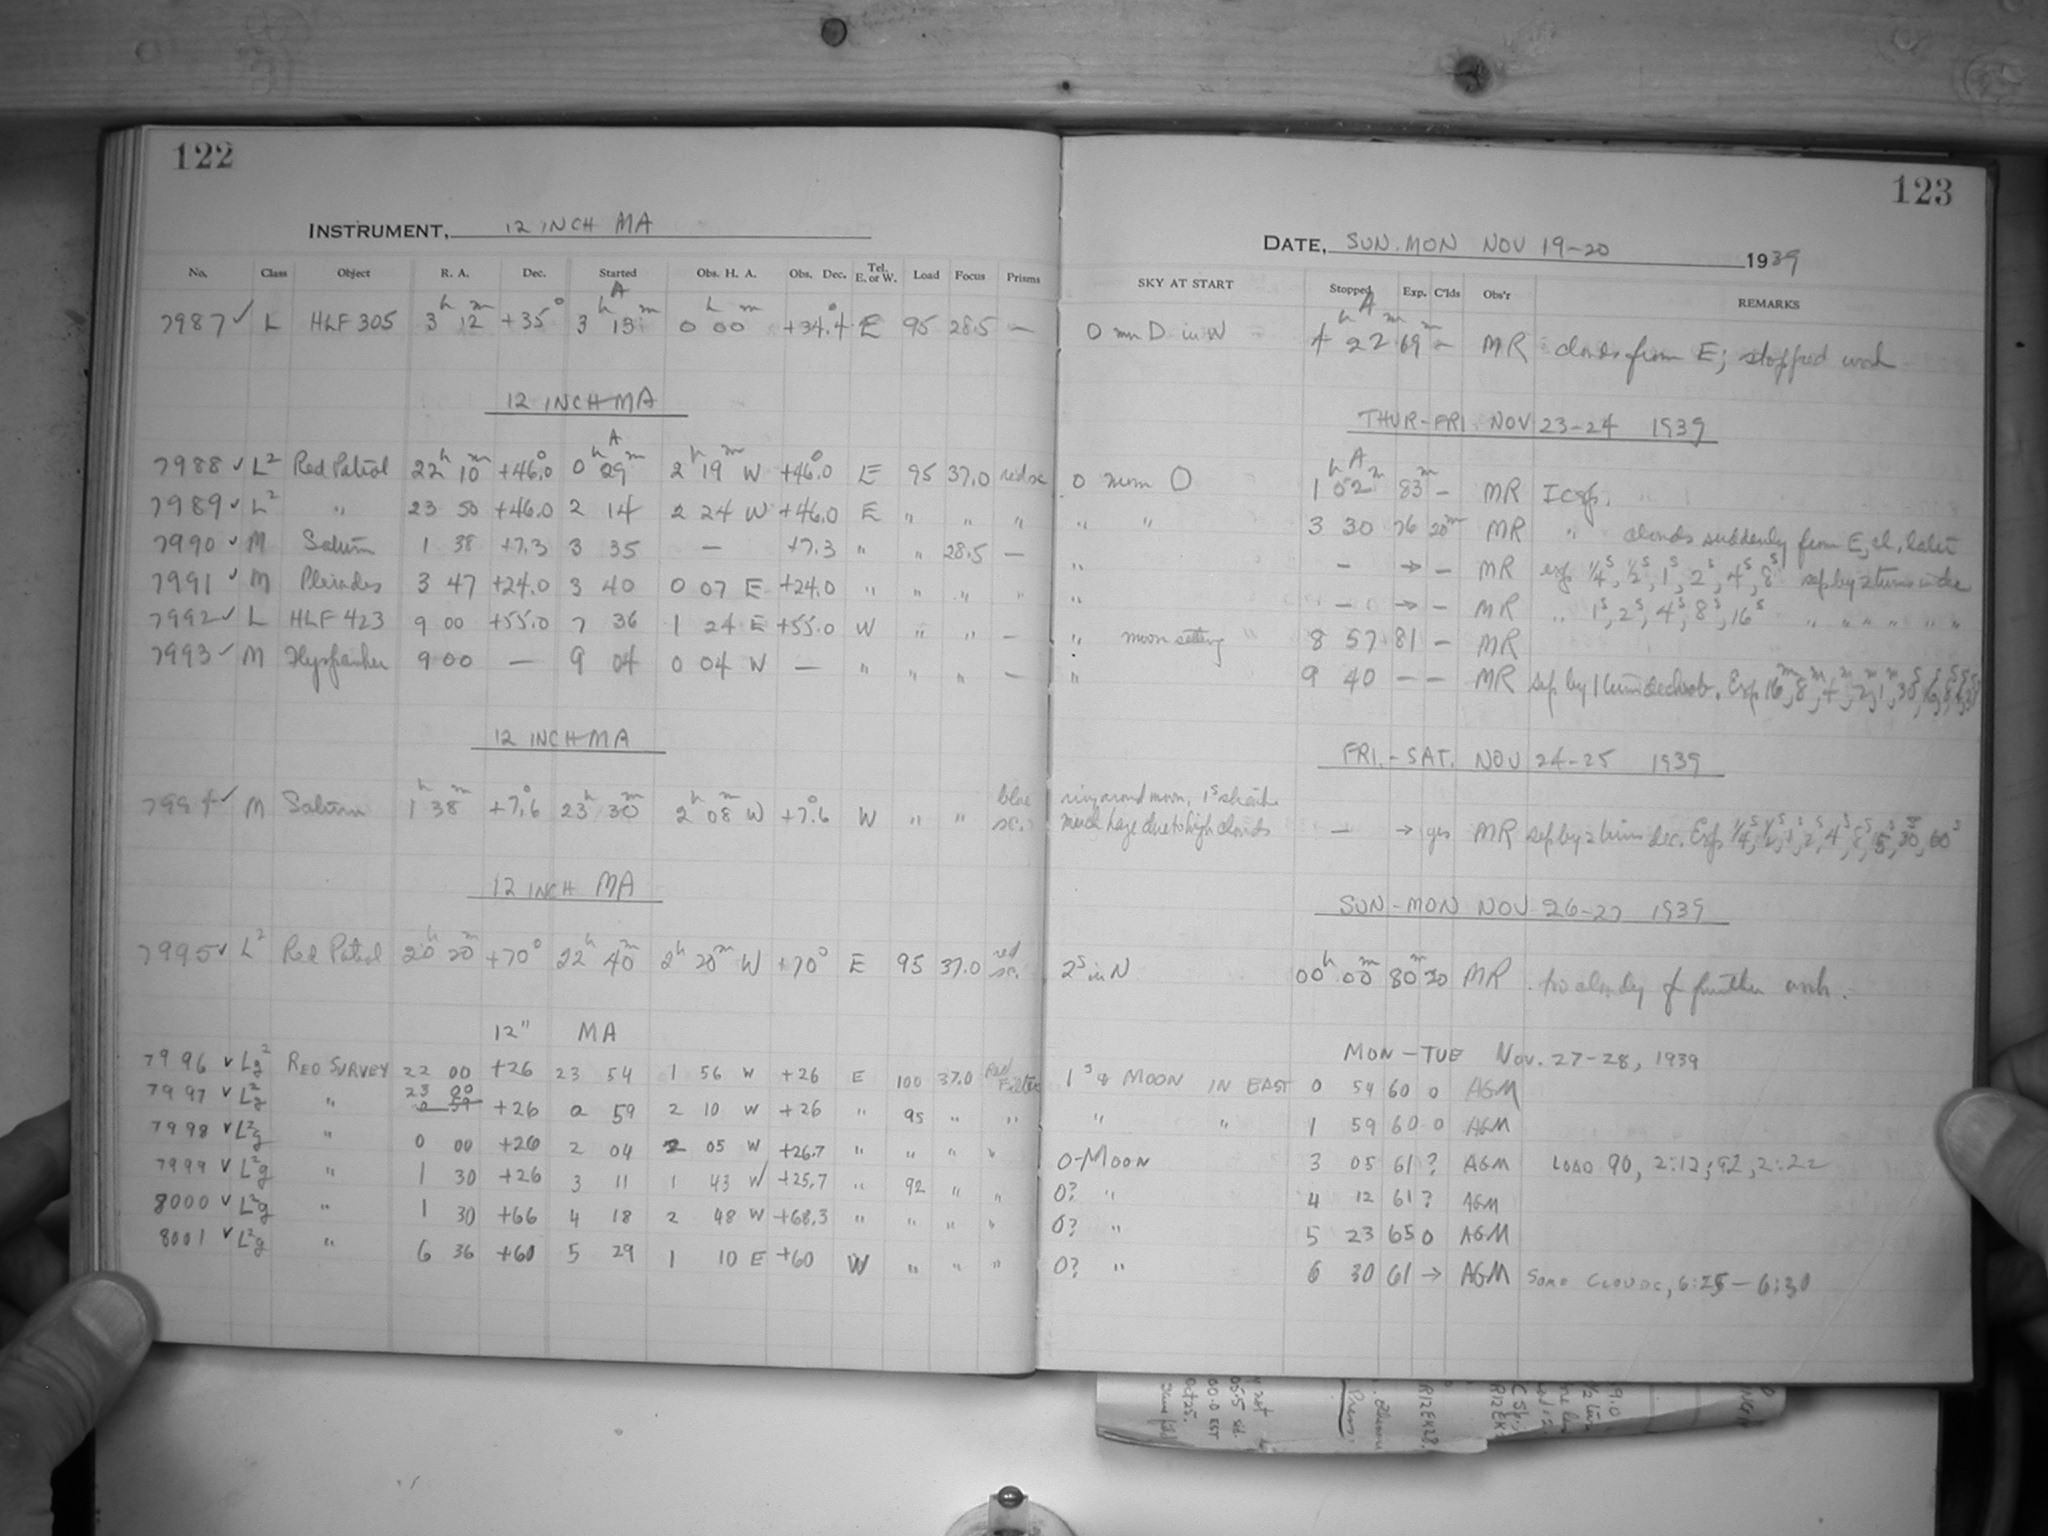 122
INSTRUMENT, 12 INCH MA
No. Class Object R. A. Dec. Started Obs. H. A. Obs. Dec. Tel. E. or W. Load Focus Prisms
A
7987 ✓ L HLF 305 3h 12m +35° 3h 13m 0h 00m +34.4° E 95 28.5 —
12 INCH MA
A
7988 ✓ L2 Red Patrol 22h 10m +46.0° 0h 29m 2h 19m W +46.0° E 95 37.0 red sc
7989 ✓ L2 " 23 50 +46.0 2 14 2 24 W +46.0 E " " "
7990 ✓ M Saturn 1 38 +7.3 3 35 — +7.3 " " 28.5 —
7991 ✓ M Pleiades 3 47 +24.0 3 40 0 07 E +24.0 " " " "
7992 ✓ L HLF 423 9 00 +55.0 7 36 1 24 E +55.0 W " " —
7993 ✓ M 9 00 — 9 04 0 04 W — " " " —
12 INCH MA
7994 ✓ M Saturn 1h 38m +7.6° 23h 30m 2h 08m W +7.6° W " " blue sc.
12 INCH MA
7995 ✓ L2 Red Patrol 20h 20m +70° 22h 40m 2h 20m W +70° E 95 37.0 red sc.
12" MA
7996 ✓ L2g RED SURVEY 22 00 +26 23 54 1 56 W +26 E 100 37.0 Red Filter
7997 ✓ L2g " 23 00 +26 0 59 2 10 W +26 " 95 " "
7998 ✓ L2g " 0 00 +26 2 04 2 05 W +26.7 " " " "
7999 ✓ L2g " 1 30 +26 3 11 1 43 W +25.7 " 92 " "
8000 ✓ L2g " 1 30 +66 4 18 2 48 W +68.3 " " " "
8001 ✓ L2g " 6 36 +60 5 29 1 10 E +60 W " " "
123
DATE, SUN. MON NOV 19-20 1939
SKY AT START Stopped Exp. C'lds Obs'r REMARKS
A
0 in W 4h 22m 69m — MR clouds from E; stopped work
THUR-FRI NOV 23-24 1939
A
0 moon 1h 52m 83m — MR I csf.
" " 3 30 76 20m MR " clouds suddenly from E, cl. later
" — → — MR exp 1/4s, 1/2s, 1s, 2s, 4s, 8s sep by 2 turns in dec
" — → — MR " 1s, 2s, 4s, 8s, 16s " " " " " "
" moon setting " 8 57 81 — MR
" 9 40 — — MR sep by 1 Exp 16m, 8m, 4m, 2m, 1m, 30s
FRI. - SAT. NOV 24-25 1939
ring around moon, 1s
much haze due to high clouds — → yes MR sep by 2 turns dec. Exp 1/4s, 1/2s, 1s, 2s, 4s, 8s, 15s, 30s, 60s
SUN-MON NOV 26-27 1939
2s in N 00h 00m 80m 20 MR too cloudy for further work.
MON-TUE Nov. 27-28, 1939
1s & MOON IN EAST 0 54 60 0 AGM
" " 1 59 60 0 AGM
0-MOON 3 05 61 ? AGM LOAD 90, 2:12; 92, 2:22
0? " 4 12 61 ? AGM
0? " 5 23 65 0 AGM
0? " 6 30 61 → AGM SOME CLOUDS, 6:25-6:30